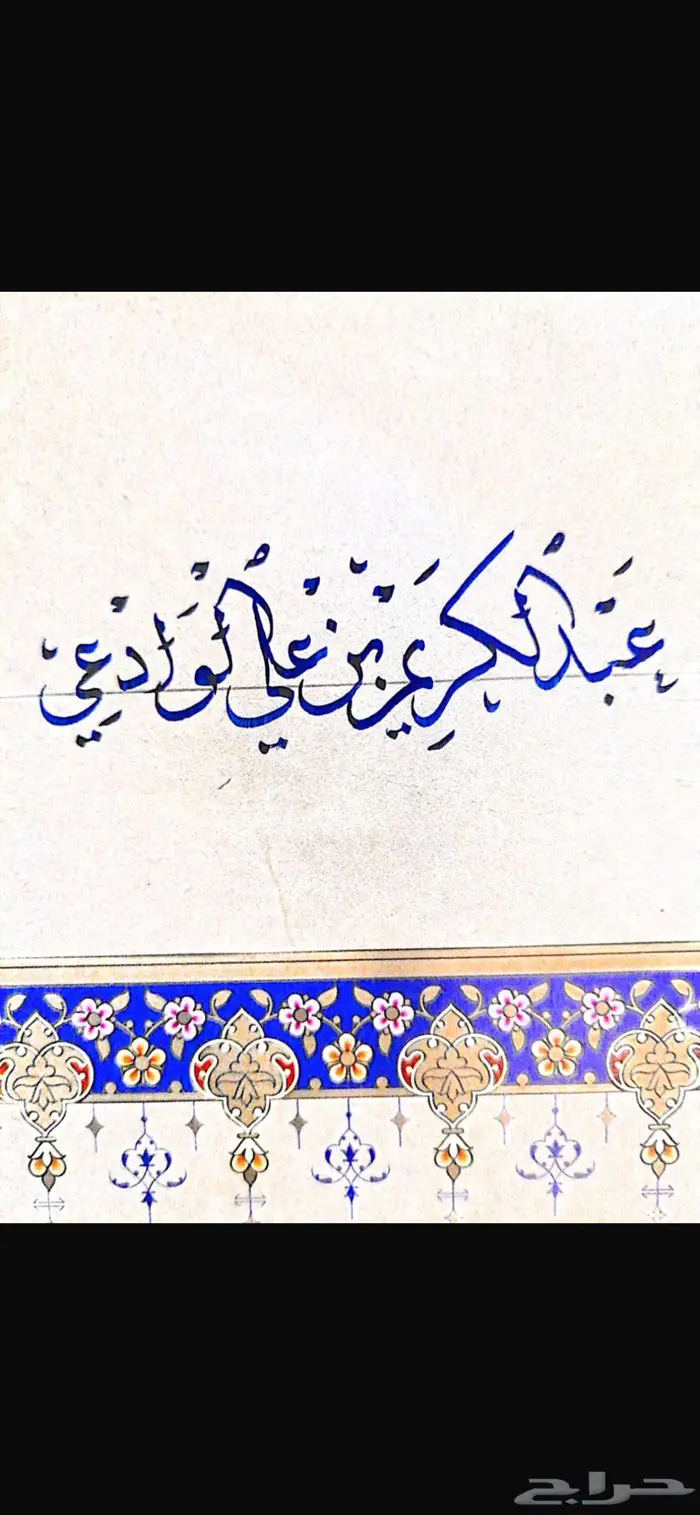 عبدالكريم بن علي الوادعي
حراج